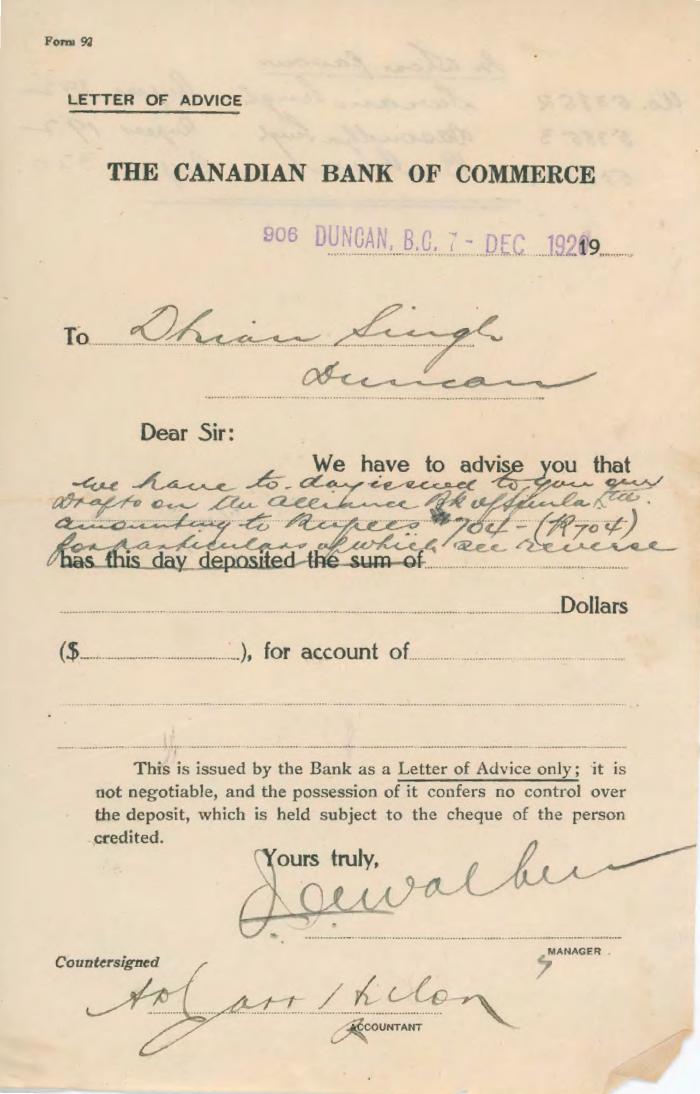 Form 92
LETTER OF ADVICE
THE CANADIAN BANK OF COMMERCE
906 DUNCAN, B.C. 7 - DEC 192 19
To Dhian Singh
Duncan
Dear Sir:
We have to advise you that
we have to-day issued to you our
Drafts on the Alliance Bk of Simla Ltd.
amounting to Rupees 704 - (R704)
for particulars of which see reverse
has this day deposited the sum of
Dollars
($ ), for account of
This is issued by the Bank as a Letter of Advice only; it is
not negotiable, and the possession of it confers no control over
the deposit, which is held subject to the cheque of the person
credited.
Yours truly,
MANAGER.
Countersigned
ACCOUNTANT